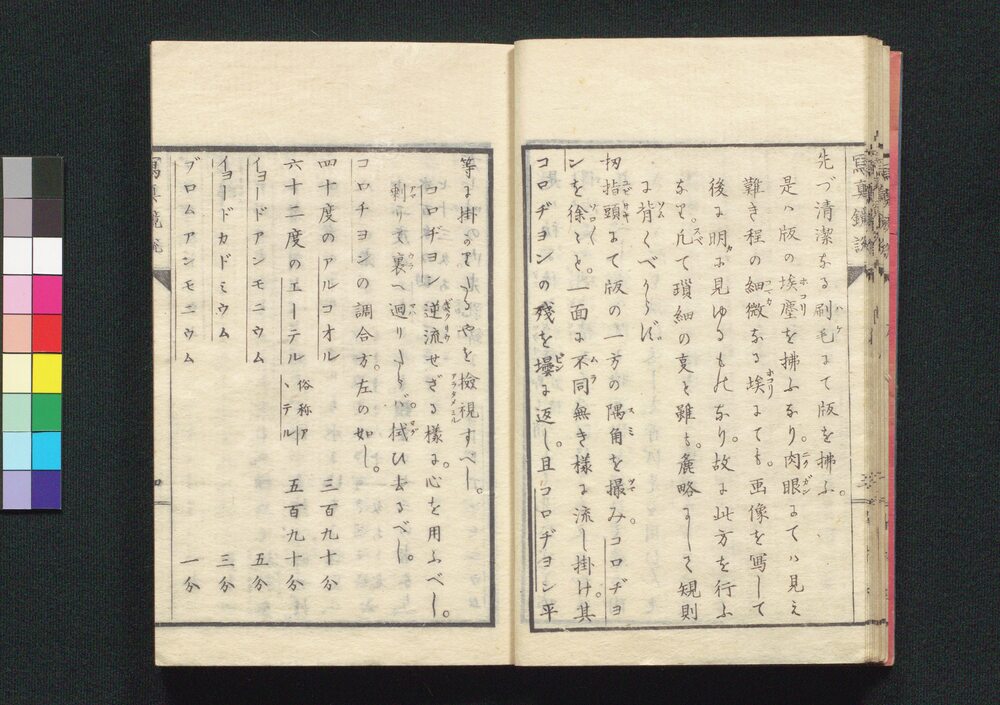 先づ清潔なる刷毛にて版を拂ふ。
是ハ版の埃塵を拂ふなり。肉眼にてハ見え
難き程の細微なる埃にても。画像を写して
後に明かに見ゆるものなり。故に此方を行ふ
なり。凡て瑣細の事と雖も。麁略にして規則
に背くべからず。
扨指頭にて版の一方の隅角を撮み。コロヂヨ
ンを徐々と。一面に不同無き様に流し掛け。其
コロヂヨンの残を壜に返し且コロヂヨン平
等に掛かりたるやを檢視すべし。
コロヂヨン逆流せざる様に。心を用ふべし。
剰りて裏へ廻りたらバ。拭ひ去るべし。
コロチヨンの調合方。左の如し。
四十度のアルコオル 三百九十分
六十二度のエーテル 俗称アヽテル 五百九十分
イヨードアンモニウム 五分
イヨードカドミウム 三分
ブロムアンモニウム 一分
寫真鏡説